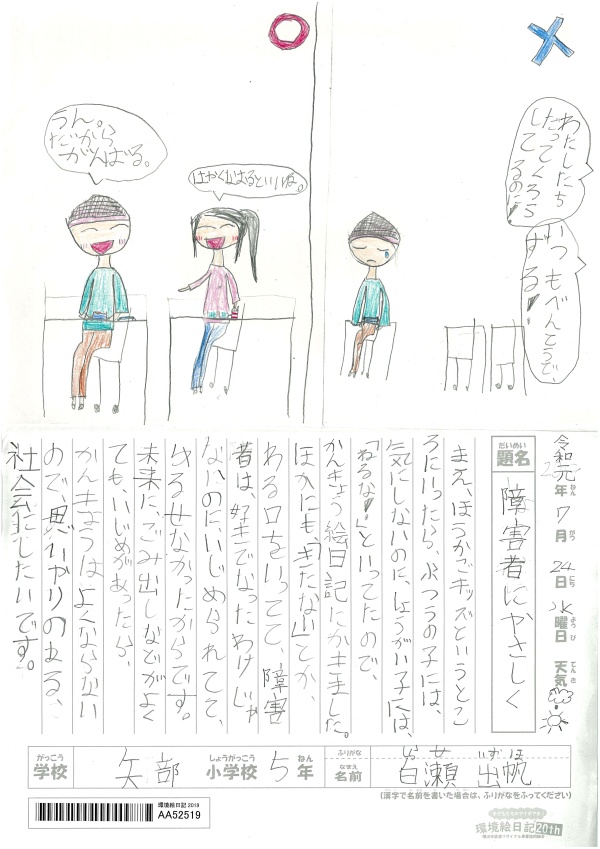 うん。
だから
がんばる。
はやくがはるといいね。
わたしたち
だってくろう
してるのに!
いつもべんとうで、
ずるい!
令和元年7月24日水曜日 天気
題名 障害者にやさしく
まえ、ほうかごキッズというとこ
ろにいったら、ふつうの子には、
気にしないのに、しょうがい子には、
「ねるな!」といってたので、
かんきょう絵日記にかきました。
ほかにも、「きたない」とか、
わる口をいってて、障害
者は、好きでなったわけじゃ
ないのにいじめられてて、
ゆるせなかったからです。
未来に、ごみ出しなどがよく
ても、いじめがあったら、
かんきょうはよくならない
ので、思いやりのある、
社会にしたいです。
学校 矢部 小学校 5年 名前 白瀬 出帆
(漢字で名前を書いた場合は、ふりがなをふってください)
環境絵日記 2019
AA52519
環境絵日記 20th